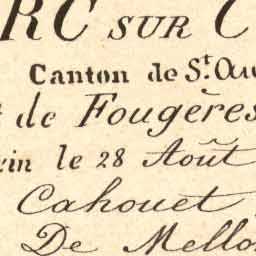 RC SUR C
Canton de St. Ou
de Fougères
in le 28 Août
Cahouet
De Mello